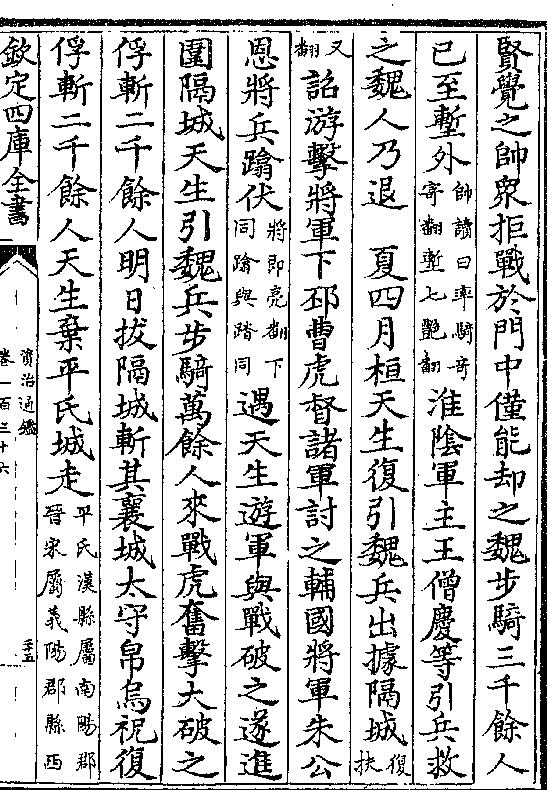 賢覺之帥衆拒戰於門中僅能却之魏步騎三千餘人
已至塹外帥讀曰率騎奇寄翻塹七艷翻淮陰軍主王僧慶等引兵救
之魏人乃退 夏四月桓天生復引魏兵出據隔城復扶
又翻詔游擊將軍下邳曹虎督諸軍討之輔國將軍朱公
恩將兵蹹伏將即亮翻下同蹹與踏同遇天生遊軍與戰破之遂進
圍隔城天生引魏兵步騎萬餘人來戰虎奮擊大破之
俘斬二千餘人明日拔隔城斬其襄城太守帛烏祝復
俘斬二千餘人天生棄平氏城走平氏漢縣屬南陽郡晉宋屬義陽郡縣西
欽定四庫全書
資治通鑑
卷一百三十六
三五